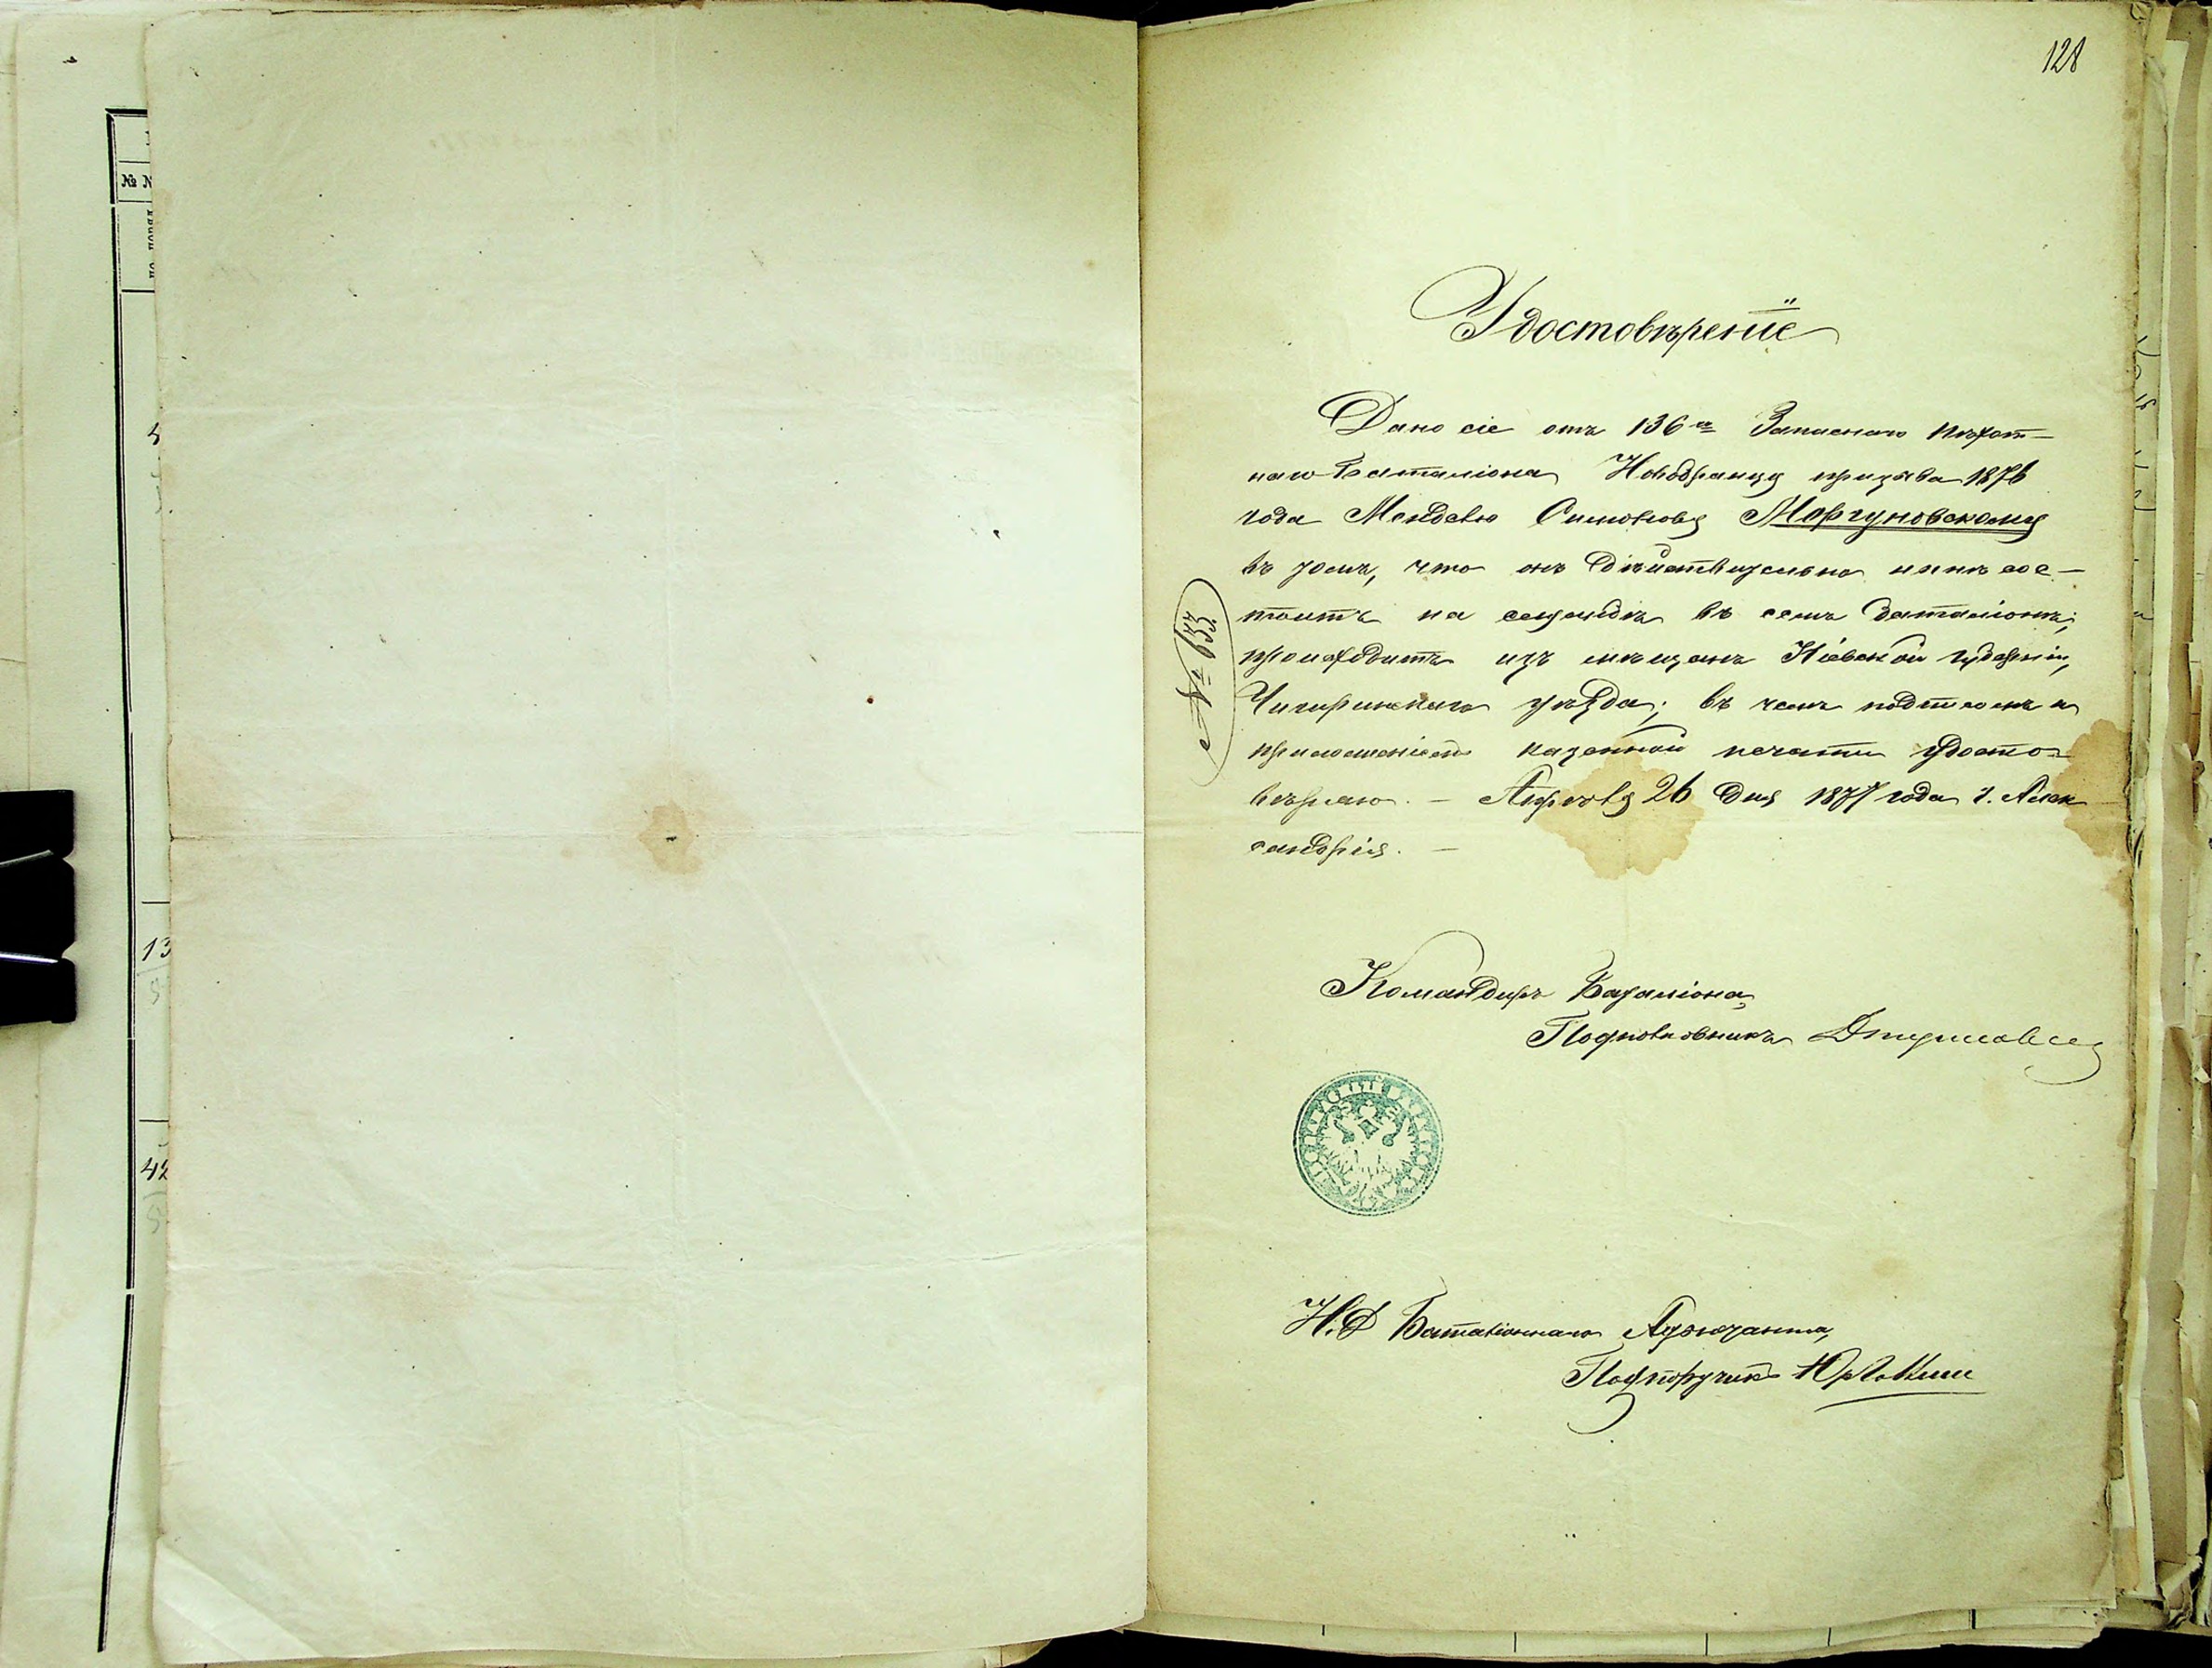 128
Удостовѣреніе
Дано сіе отъ 136го Запаснаго пѣхот-
наго Баталіона Новобранцу призыва 1876
года Менделю Симонову Моргуновскому
въ томъ, что онъ дѣйствительно нынѣ сос-
тоитъ на службѣ въ семъ баталіонѣ;
происходитъ изъ мѣщанъ Кіевской губерніи,
Чигиринскаго уѣзда; въ чемъ подписомъ и
приложеніемъ казенной печати удосто-
вѣряю. — Апрѣля 26 дня 1877 года г. Алек
сандрія. —
№ 633
Командиръ Баталіона,
Подполковникъ
И.Д Баталіоннаго Адъютанта,
Подпоручикъ
№ №
по поряд
13
42